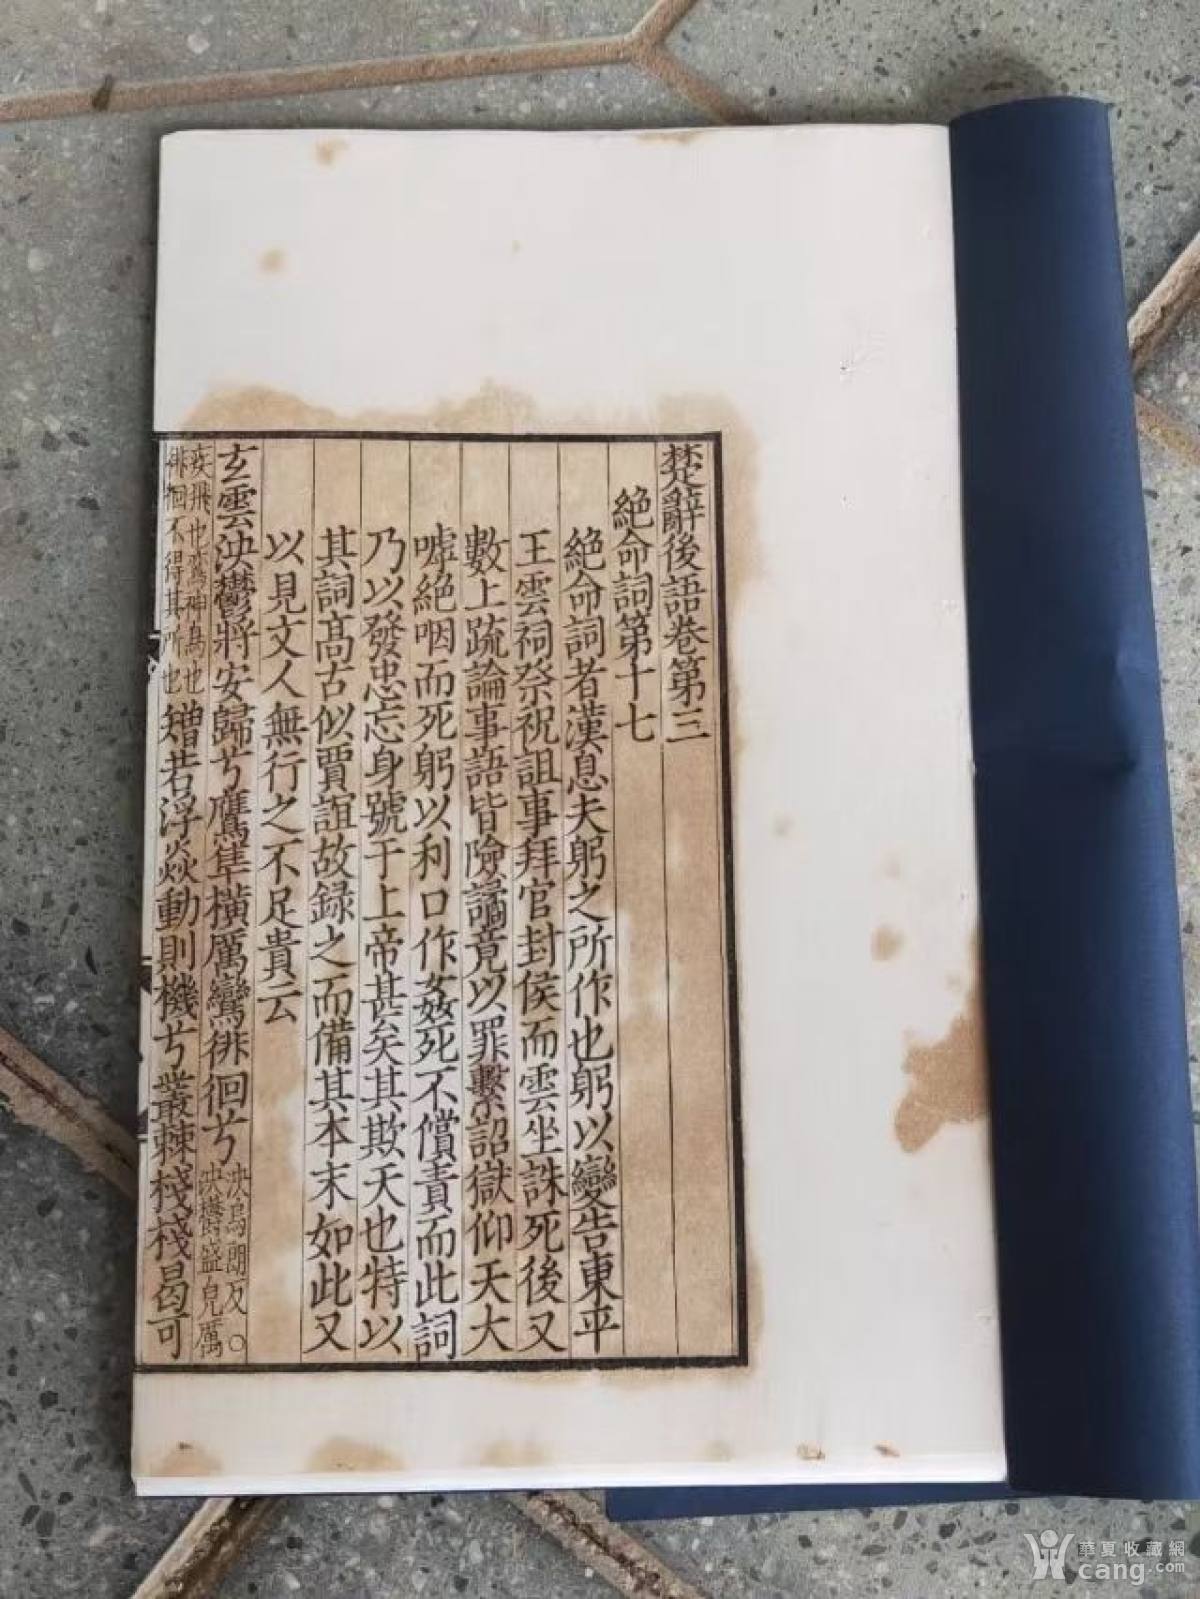 楚辭後語卷第三
絕命詞第十七
絕命詞者漢息夫躬之所作也躬以變告東平
王雲祠祭祝詛事拜官封侯而雲坐誅死後又
數上疏論事語皆險譎竟以罪繫詔獄仰天大
嘑絕咽而死躬以利口作姦死不償責而此詞
乃以發忠忘身號于上帝甚矣其欺天也特以
其詞高古似賈誼故録之而備其本末如此又
以見文人無行之不足貴云
玄雲泱鬱將安歸兮鷹隼橫厲鸞徘徊兮泱烏朗反○泱鬱盛皃厲
疾飛也鸞神鳥也徘徊不得其所也矰若浮猋動則機兮叢棘棧棧曷可
華夏收藏網
cang.com